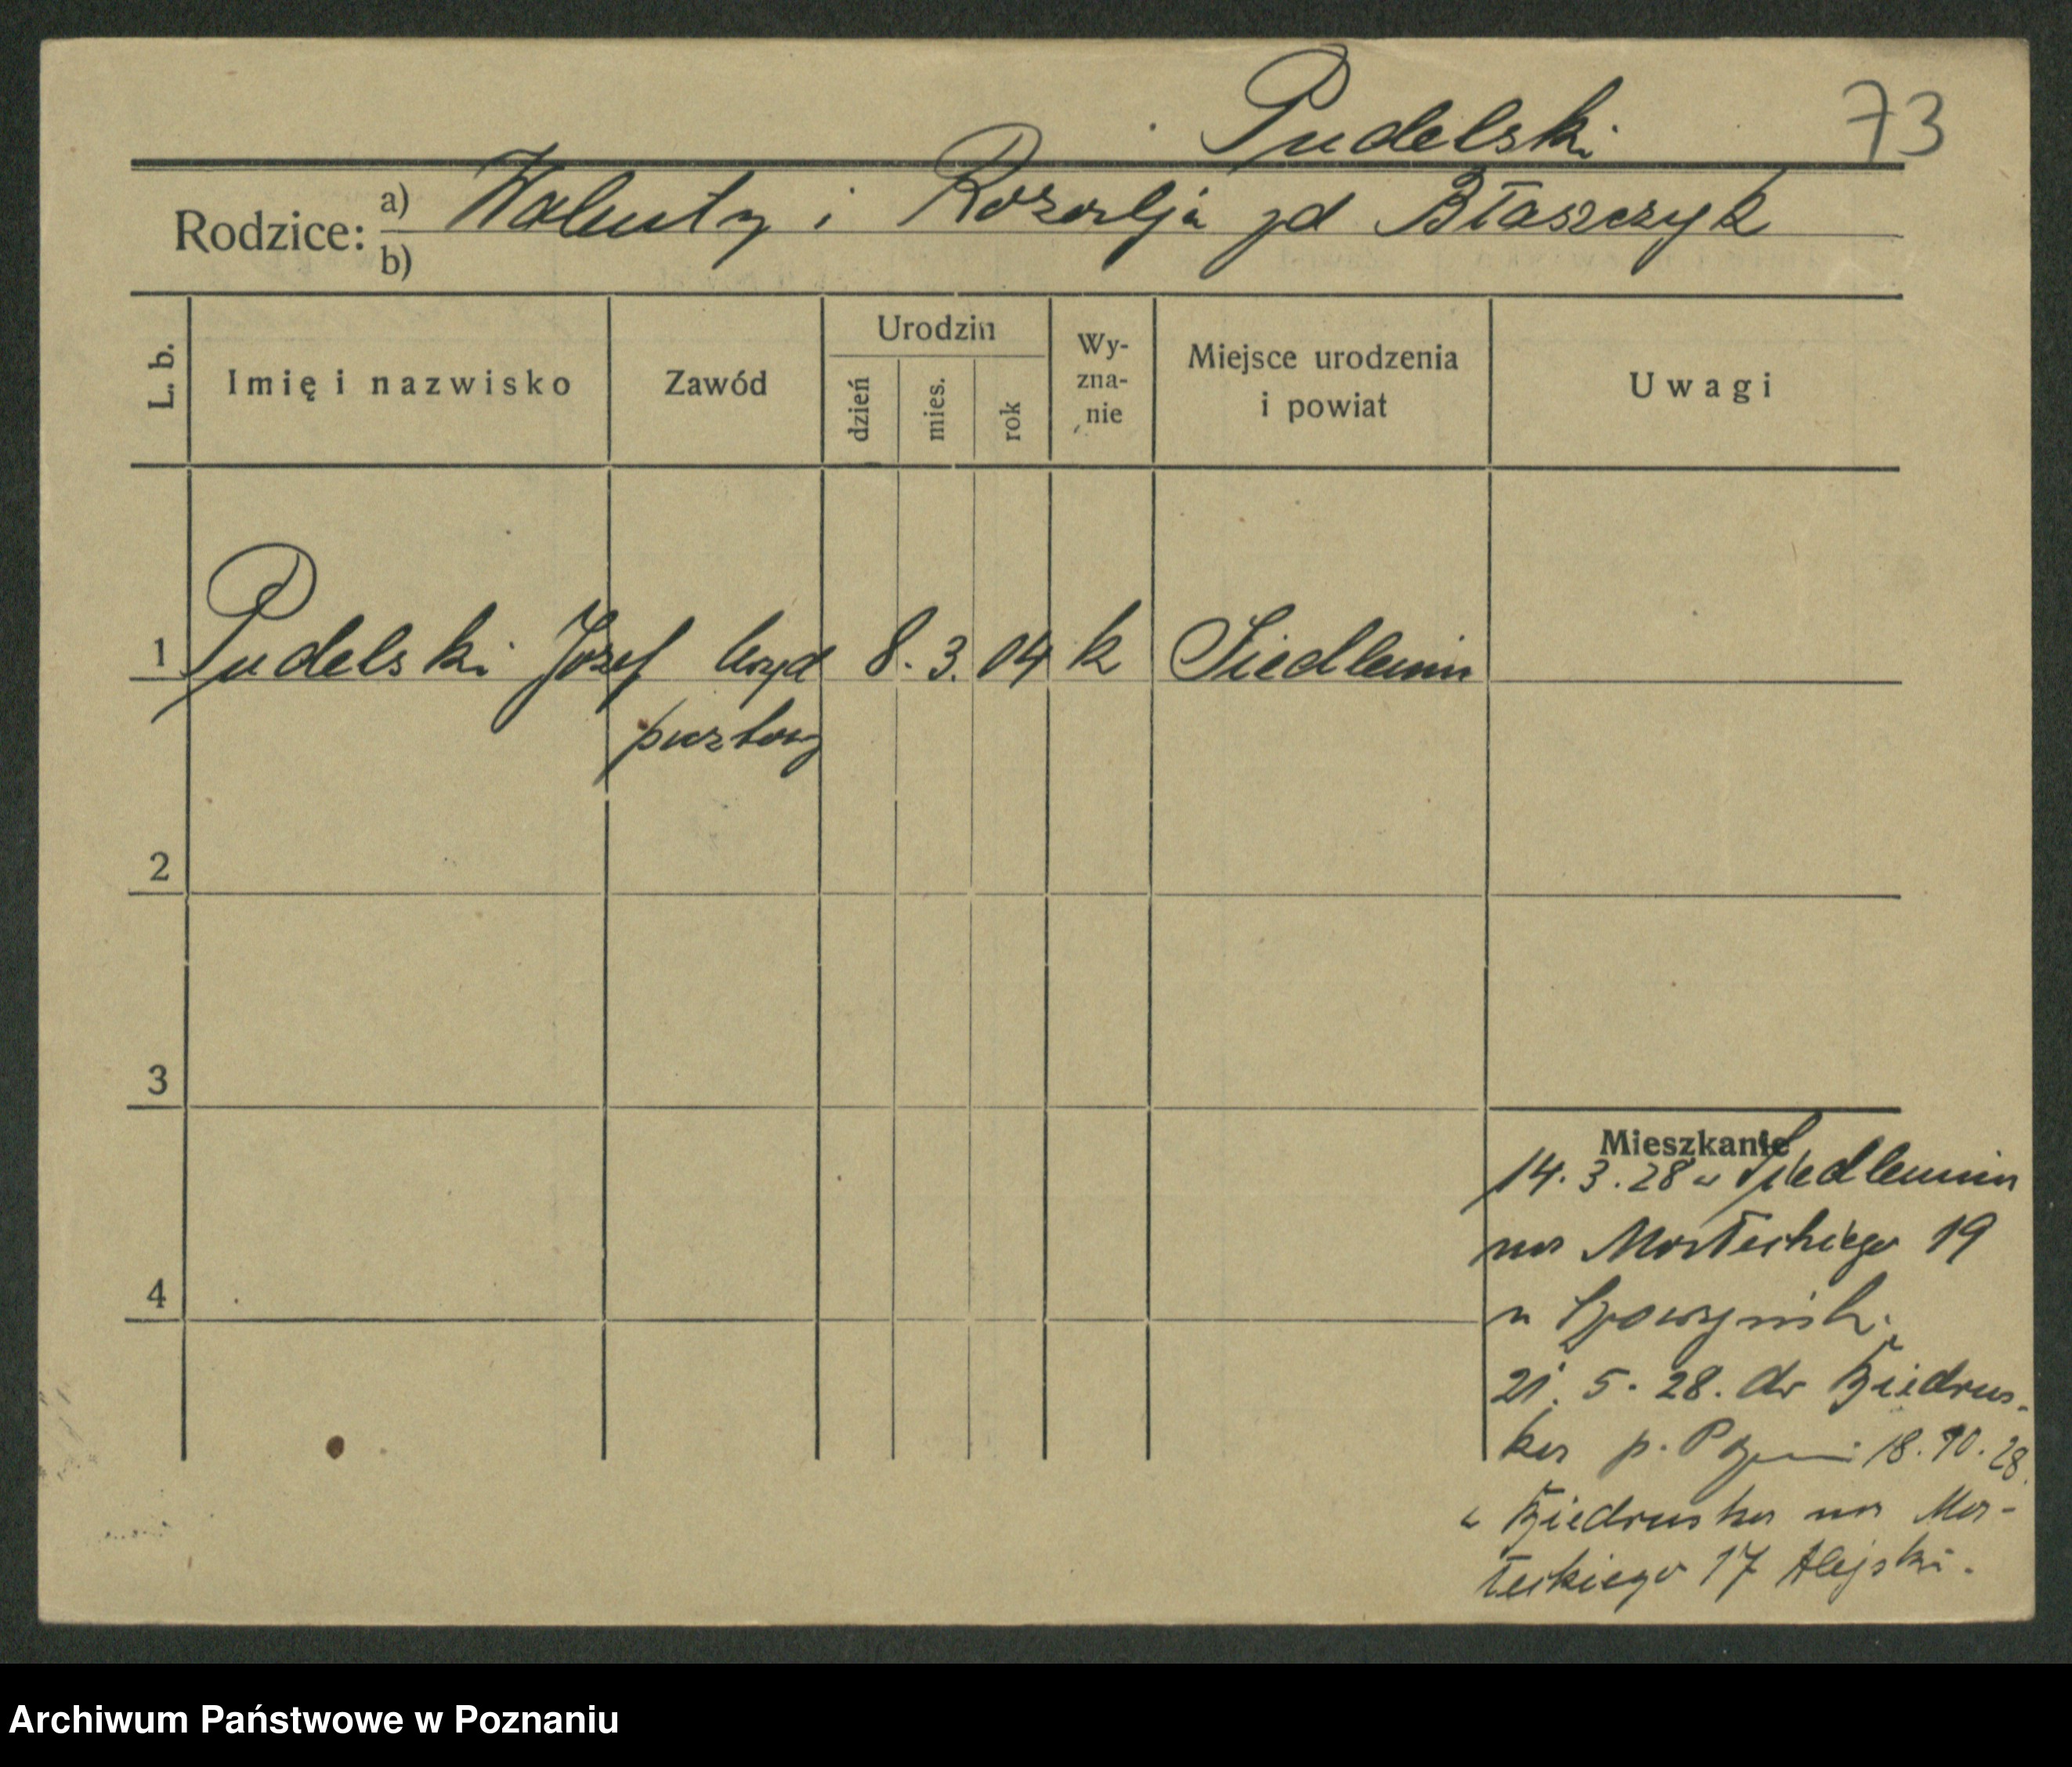 Pudelski 73
Rodzice: a) Walenty i Rozalja zd Błaszczyk
b)
L. b. Imię i nazwisko Zawód Urodzin dzień mies. rok Wy-zna-nie Miejsce urodzenia i powiat Uwagi
1 Pudelski Józef urzęd 8. 3. 04 k Siedlemin
pocztowy
2
3
Mieszkanie
14. 3. 28 z Siedlemin
na Mortęskiego 19
4
21. 5. 28. do Biedrus-
ka p. 18. 10. 28.
z Biedruska na Mor-
tęskiego 17 Alejski.
Archiwum Państwowe w Poznaniu